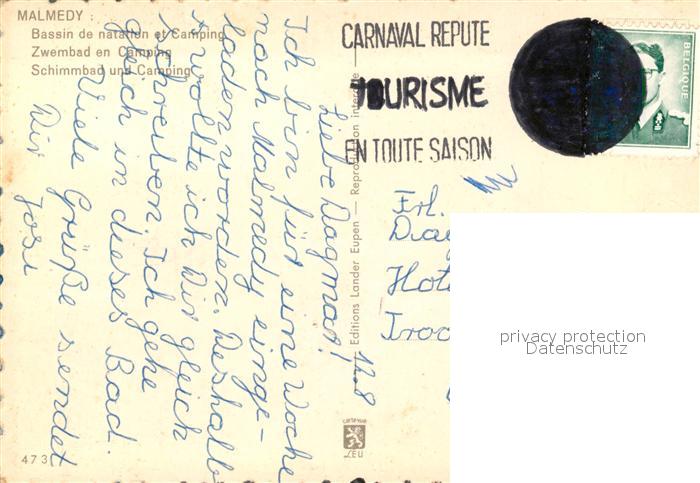 MALMEDY :
Bassin de natation et Camping
Zwembad en Camping
Schimmbad und Camping
CARNAVAL REPUTE
TOURISME
EN TOUTE SAISON
BELGIQUE
12.8
Liebe Dagmar!
Ich bin für eine Woche
nach Malmedy einge-
laden worden. Deshalb
wollte ich Dir gleich
schreiben. Ich gehe
gleich in dieses Bad.
Viele Grüße sendet
Dir Josi
Editions Lander Eupen — Reproduction interdite
Frl.
Dag
Hote
Troo
privacy protection
Datenschutz
LEU
473